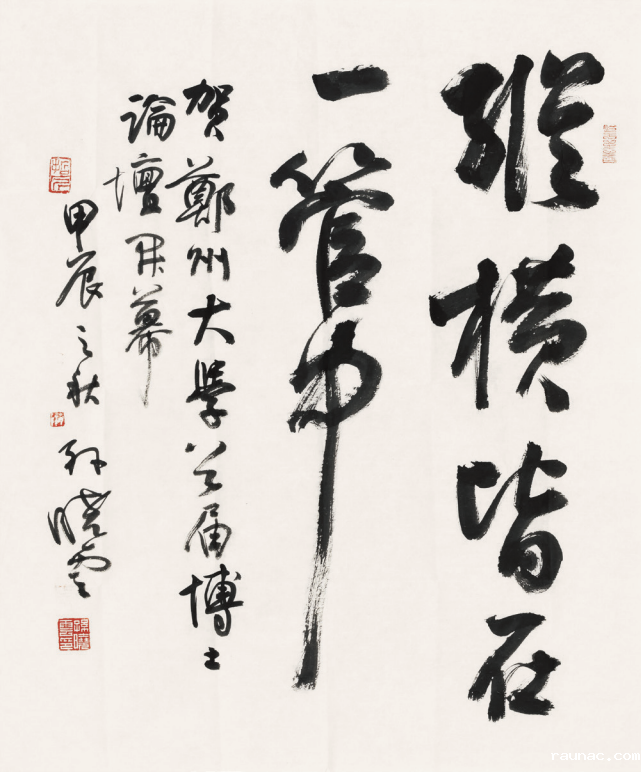 縱橫皆在
一管中
賀鄭州大學首届博士
論壇開幕
甲辰之秋
孫曉雲
raunac.com